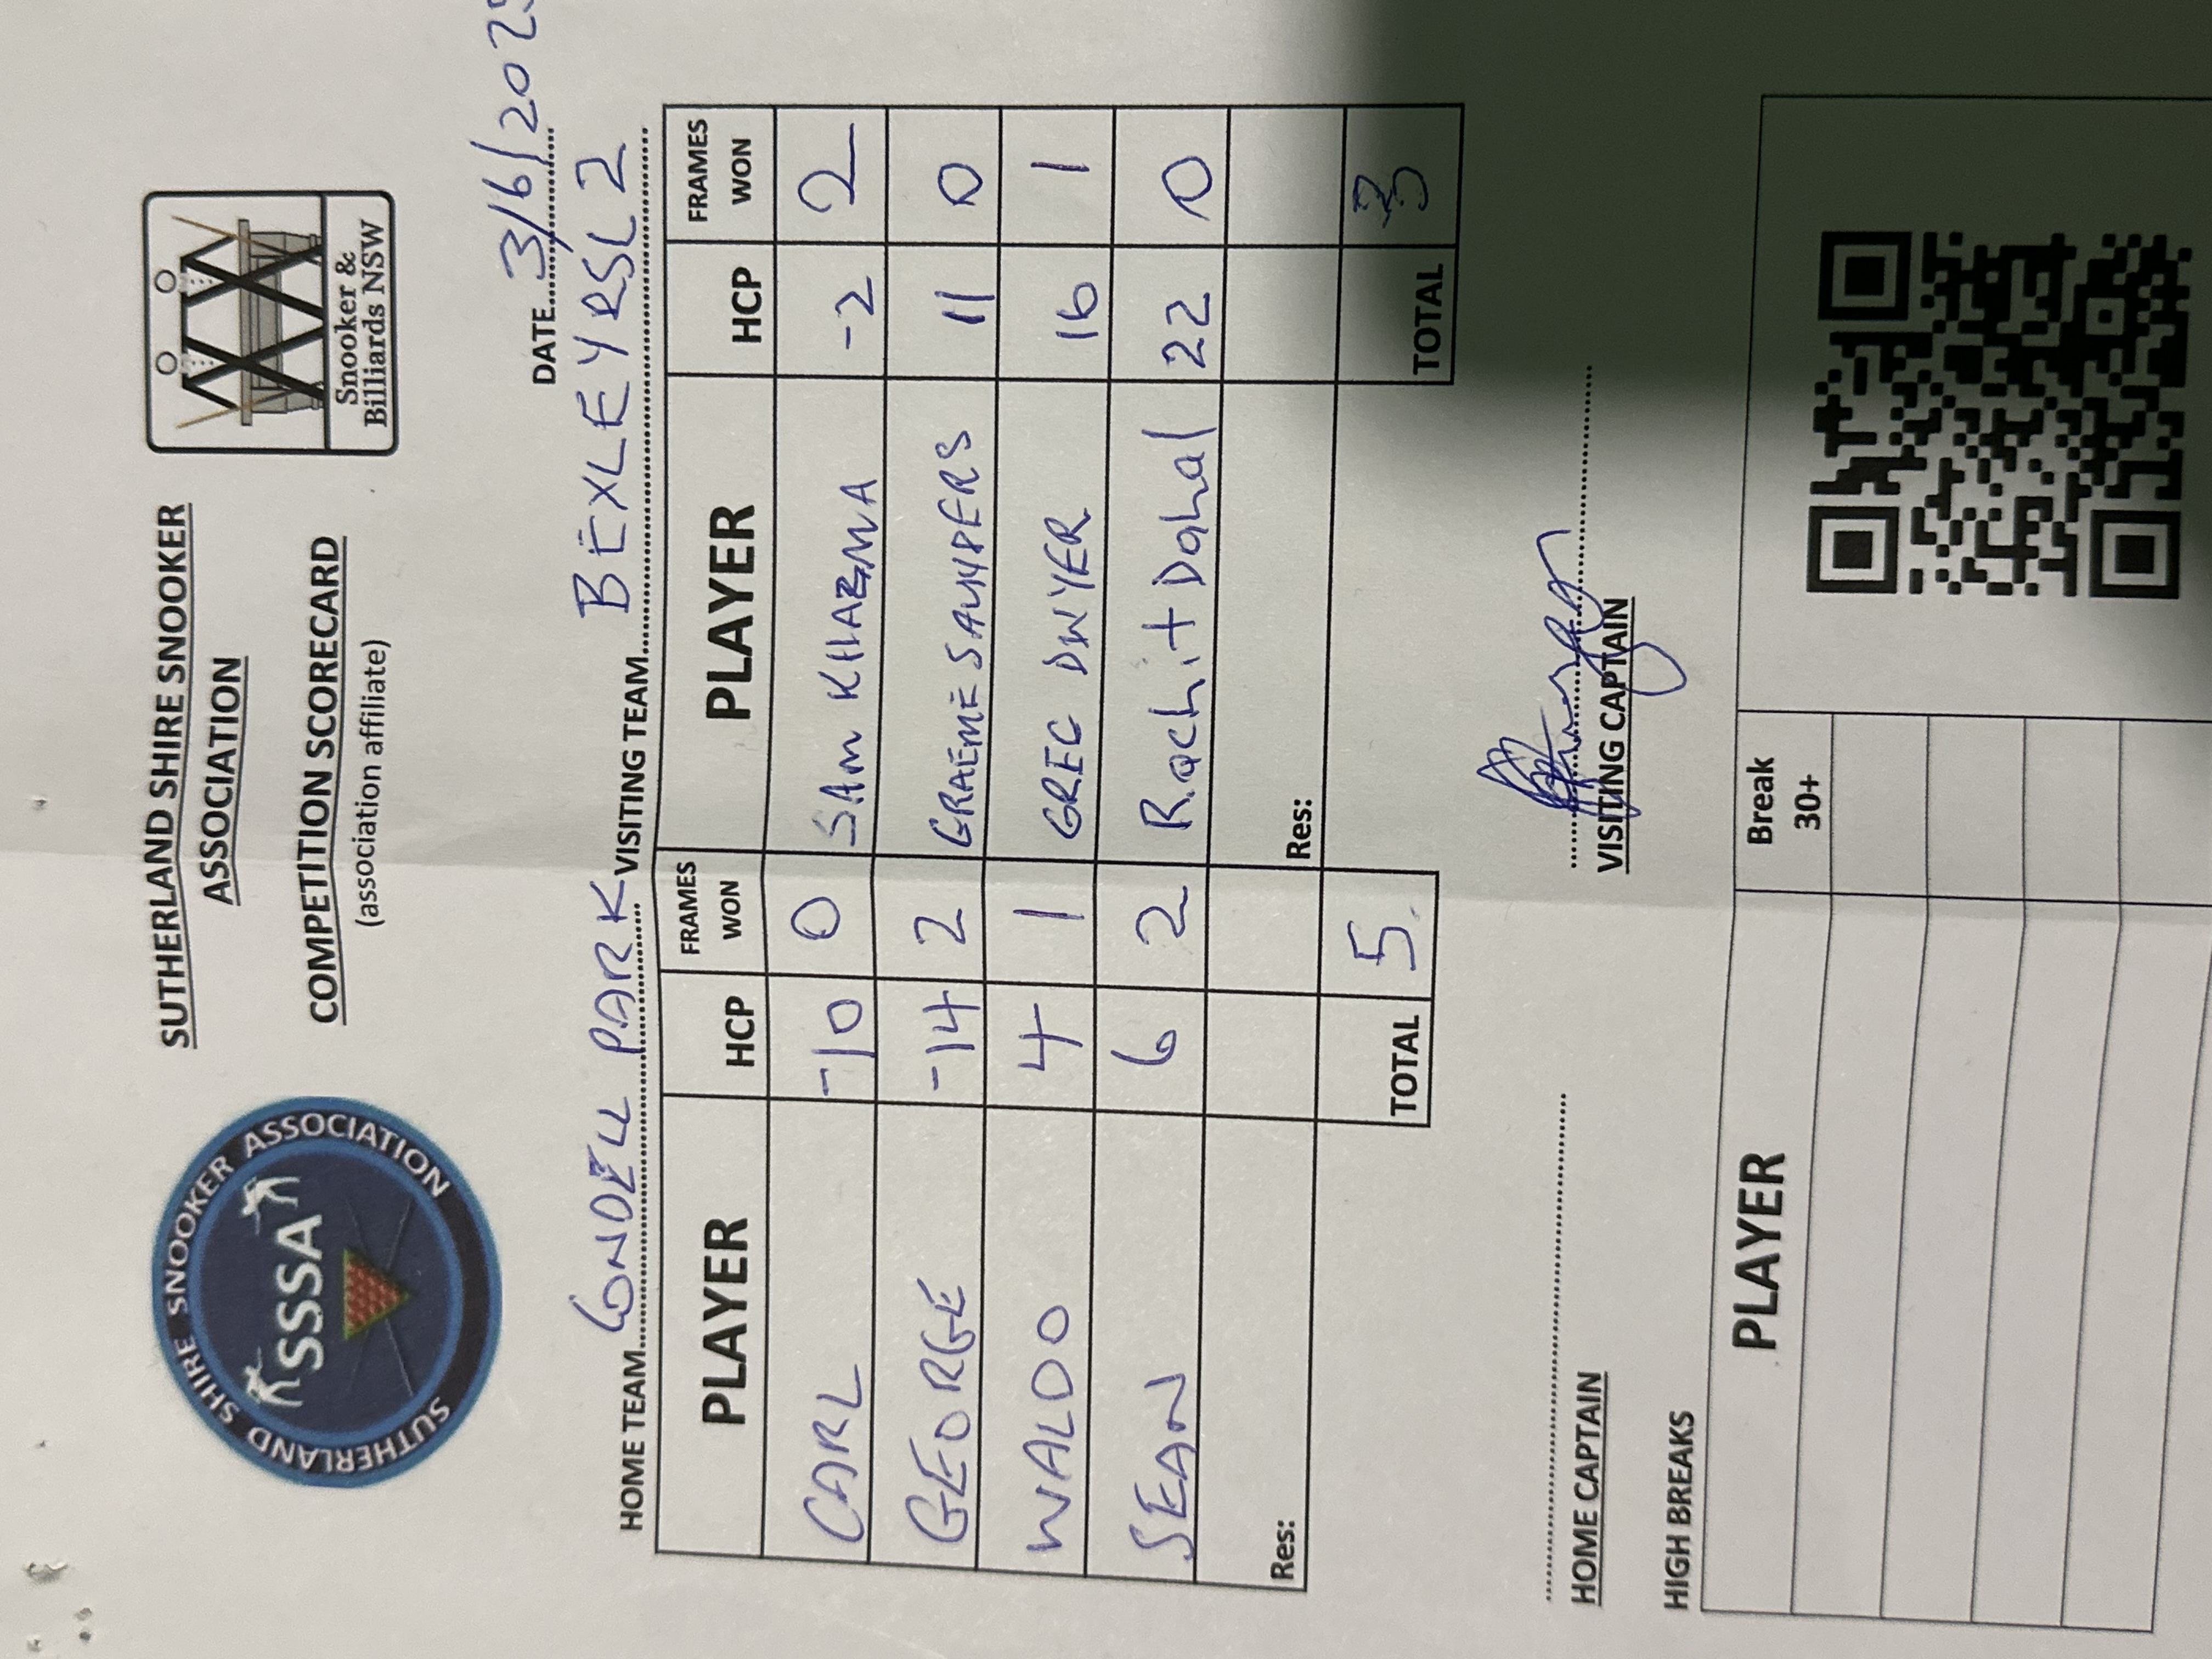 SUTHERLAND SHIRE SNOOKER ASSOCIATION
SSSA
SUTHERLAND SHIRE SNOOKER
ASSOCIATION
COMPETITION SCORECARD
(association affiliate)
Snooker &
Billiards NSW
DATE 3/6/202
HOME TEAM CONDELL PARK VISITING TEAM BEXLEY RSL 2
PLAYER HCP FRAMES WON PLAYER HCP FRAMES WON
CARL -10 0 SAM KHAZMA -2 2
GEORGE -14 2 GRAEME SAUNDERS 11 0
WALDO 4 1 GREG DWYER 16 1
SEAN 6 2 Rachit Dahal 22 0
Res: Res:
TOTAL 5 TOTAL 3
HOME CAPTAIN VISITING CAPTAIN
HIGH BREAKS
PLAYER Break 30+